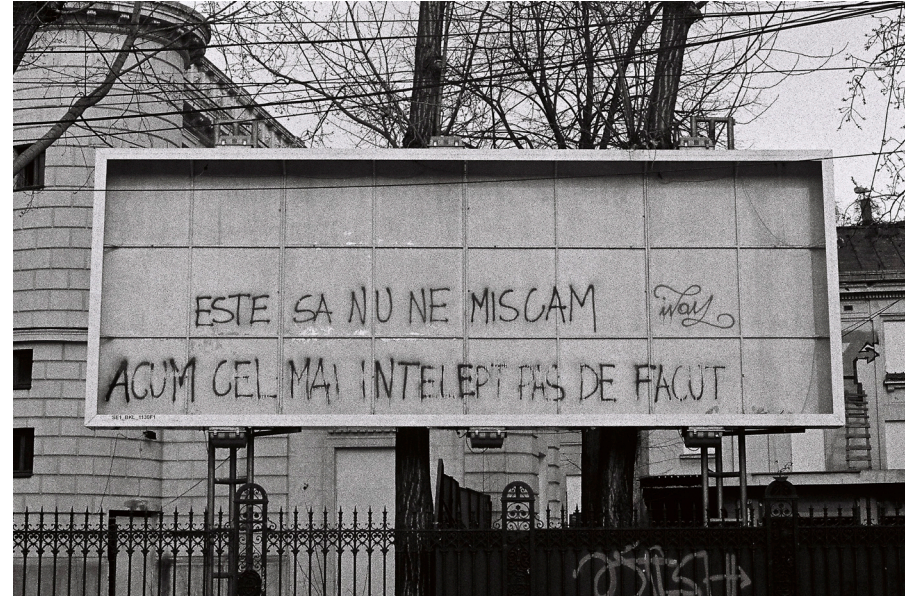 ESTE SA NU NE MISCAM
ACUM CEL MAI INTELEPT PAS DE FACUT